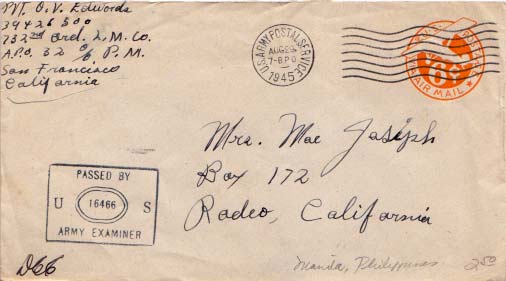 Pvt. O.V. Edwards
39426500
732nd Ord. L.M. Co.
A.P.O. 32 c/o P.M.
San Francisco
California
U.S. ARMY POSTAL SERVICE
AUG 29
7-8 P
1945
VIA AIR MAIL
6¢
Mrs. Mae Joseph
Box 172
Rodeo, California
PASSED BY
U 16466 S
ARMY EXAMINER
D66
Manila, Philippines
2.50